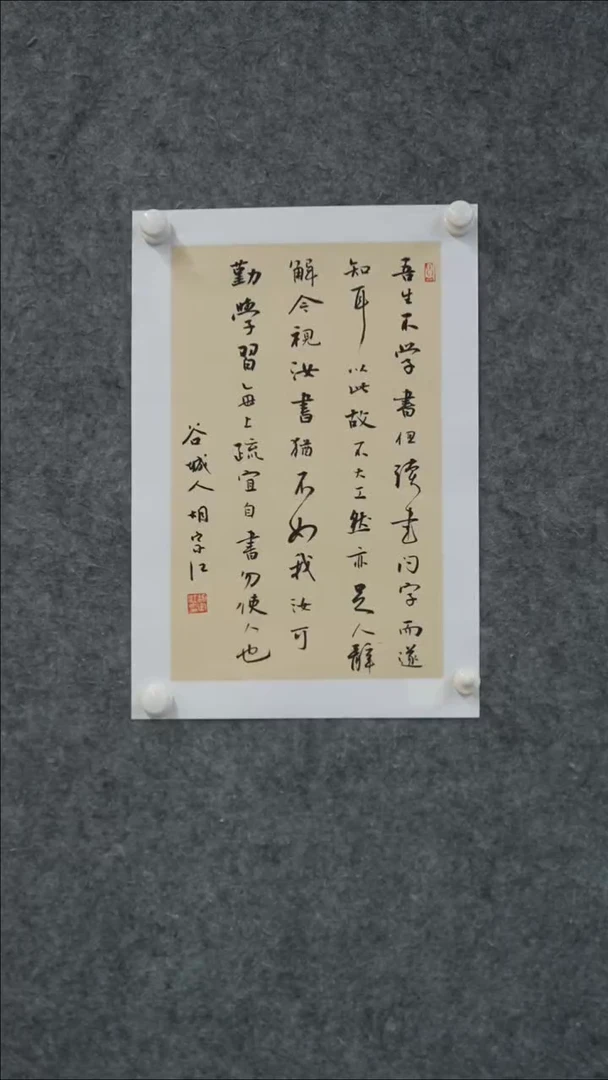 吾生不学書但读書问字而遂
知耳以此故不大工然亦足人辞
解今視汝書猶不如我汝可
勤學習每上疏宜自書勿使人也
谷城人胡宗江